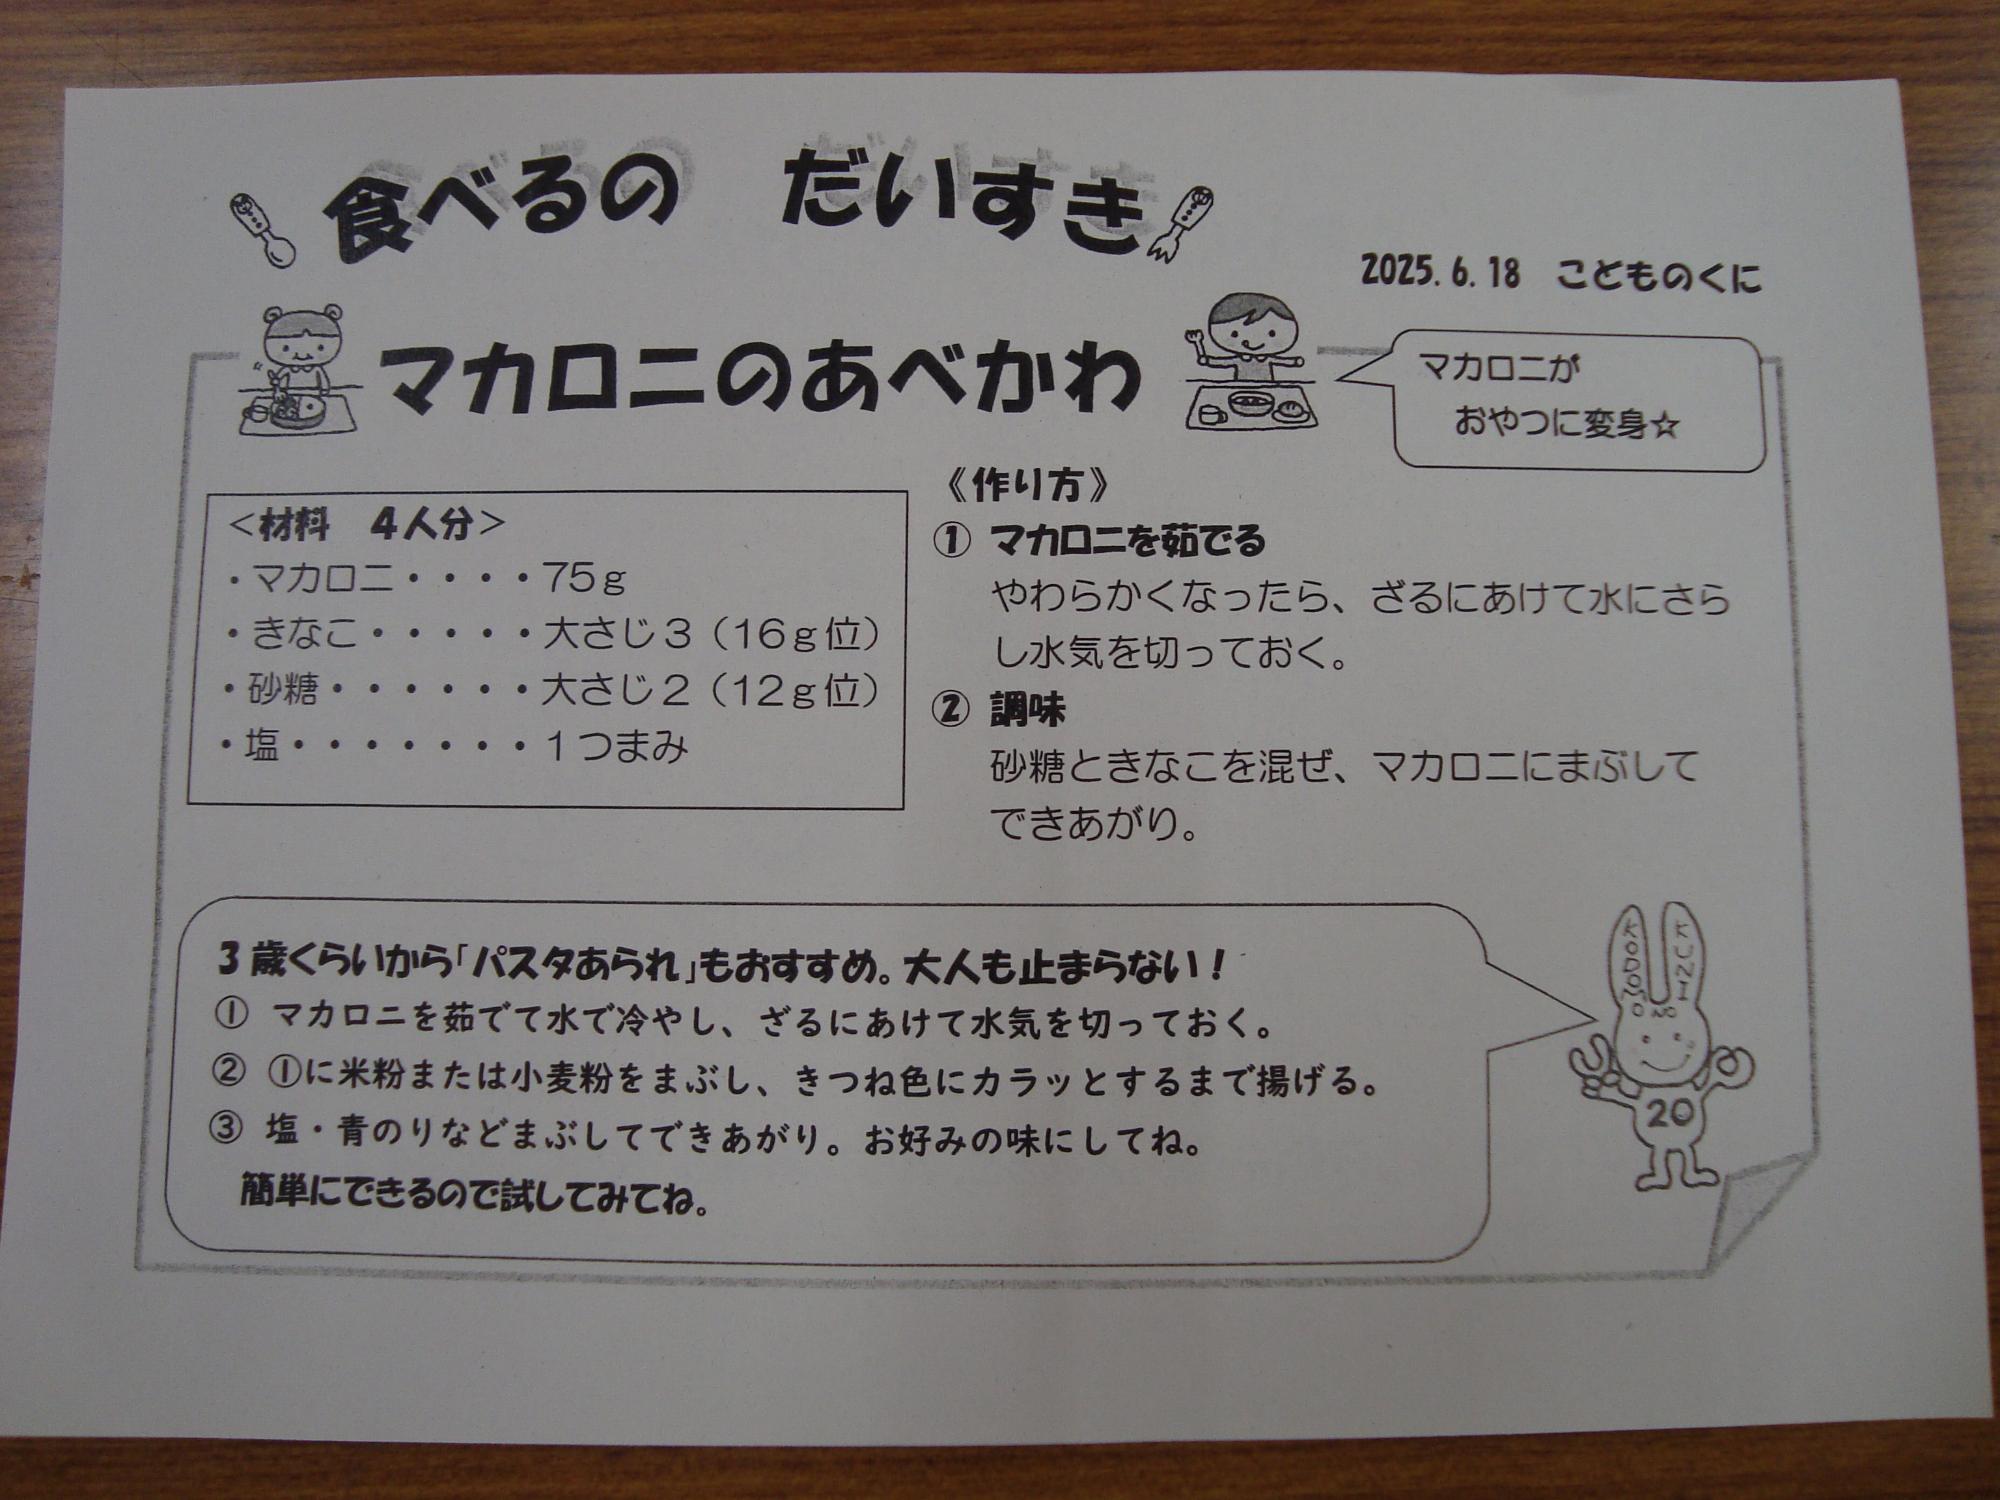 食べるの　だいすき
2025.6.18　こどものくに
マカロニのあべかわ
マカロニが
おやつに変身☆
＜材料　4人分＞
・マカロニ・・・・75g
・きなこ・・・・・大さじ3（16g位）
・砂糖・・・・・・大さじ2（12g位）
・塩・・・・・・・1つまみ
《作り方》
① マカロニを茹でる
やわらかくなったら、ざるにあけて水にさら
し水気を切っておく。
② 調味
砂糖ときなこを混ぜ、マカロニにまぶして
できあがり。
3歳くらいから「パスタあられ」もおすすめ。大人も止まらない！
① マカロニを茹でて水で冷やし、ざるにあけて水気を切っておく。
② ①に米粉または小麦粉をまぶし、きつね色にカラッとするまで揚げる。
③ 塩・青のりなどまぶしてできあがり。お好みの味にしてね。
簡単にできるので試してみてね。
KODOMO
NO
KUNI
20